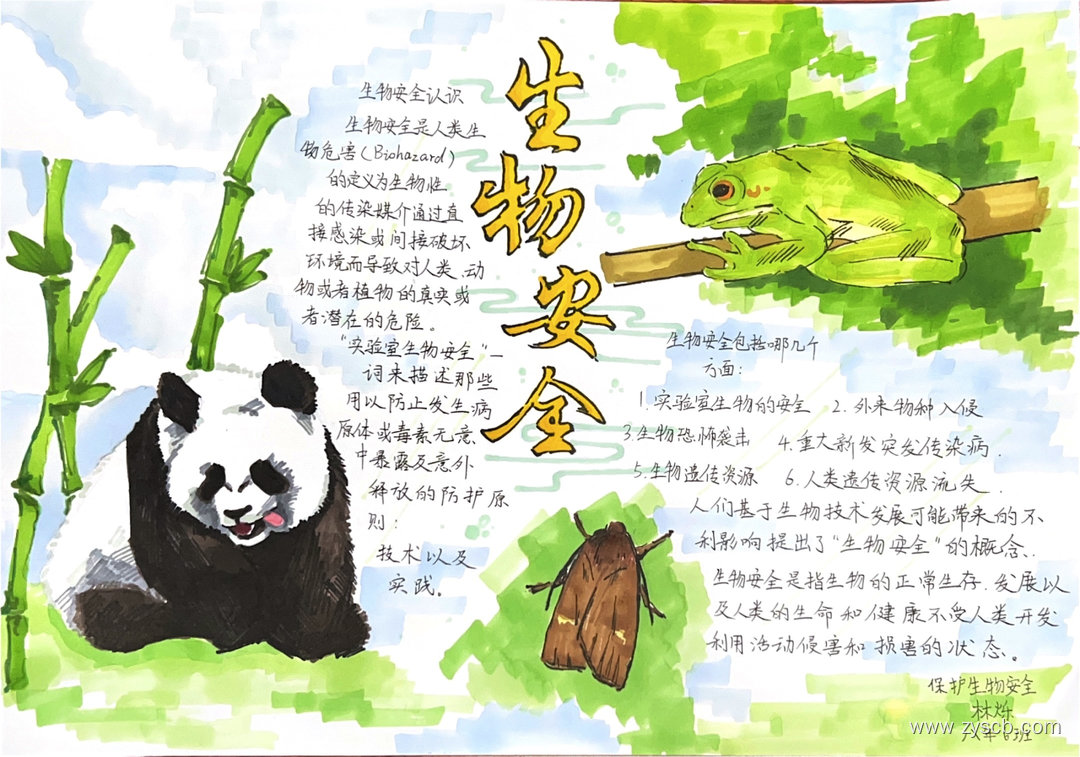 生物安全
生物安全认识
生物安全是人类生
物危害(Biohazard)
的定义为生物性
的传染媒介通过直
接感染或间接破坏
环境而导致对人类、动
物或者植物的真实或
者潜在的危险。
"实验室生物安全"一
词来描述那些
用以防止发生病
原体或毒素无意
中暴露及意外
释放的防护原
则:
技术以及
实践。
生物安全包括哪几个
方面:
1.实验室生物的安全 2.外来物种入侵
3.生物恐怖袭击 4.重大新发突发传染病.
5.生物遗传资源 6.人类遗传资源流失.
人们基于生物技术发展可能带来的不
利影响提出了"生物安全"的概念.
生物安全是指生物的正常生存.发展以
及人类的生命和健康不受人类开发
利用活动侵害和损害的状态。
保护生物安全
林烁
www.zyscb.com